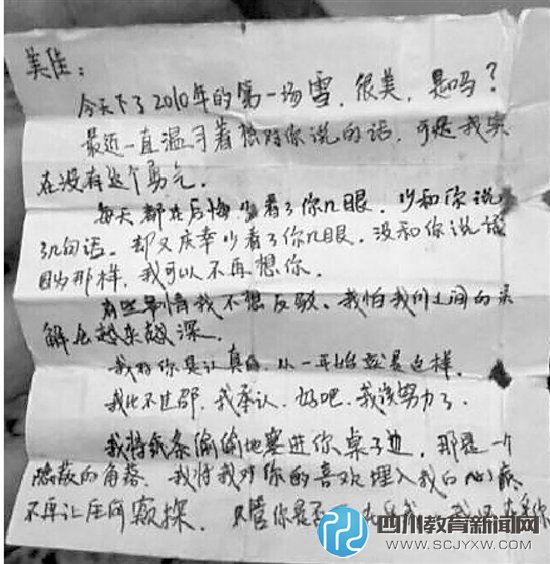 美佳：
今天下了2010年的第一场雪，很美，是吗？
最近一直温习着想对你说的话，可是我实
在没有这个勇气。
每天都在后悔少看了你几眼，少和你说
了几句话。却又庆幸少看了你几眼，没和你说话
因为那样，我可以不再想你。
有些事情我不想反驳。我怕我们之间的误
解会越来越深。
我对你是认真的，从一开始就是这样。
我比不过邵，我承认。好吧，我该努力了。
我将纸条偷偷地塞进你桌子边，那是一个
隐蔽的角落。我将我对你的喜欢埋入我的心底
不再让任何窥探。只管你是否
四川教育新闻网
WWW.SCJYXW.COM